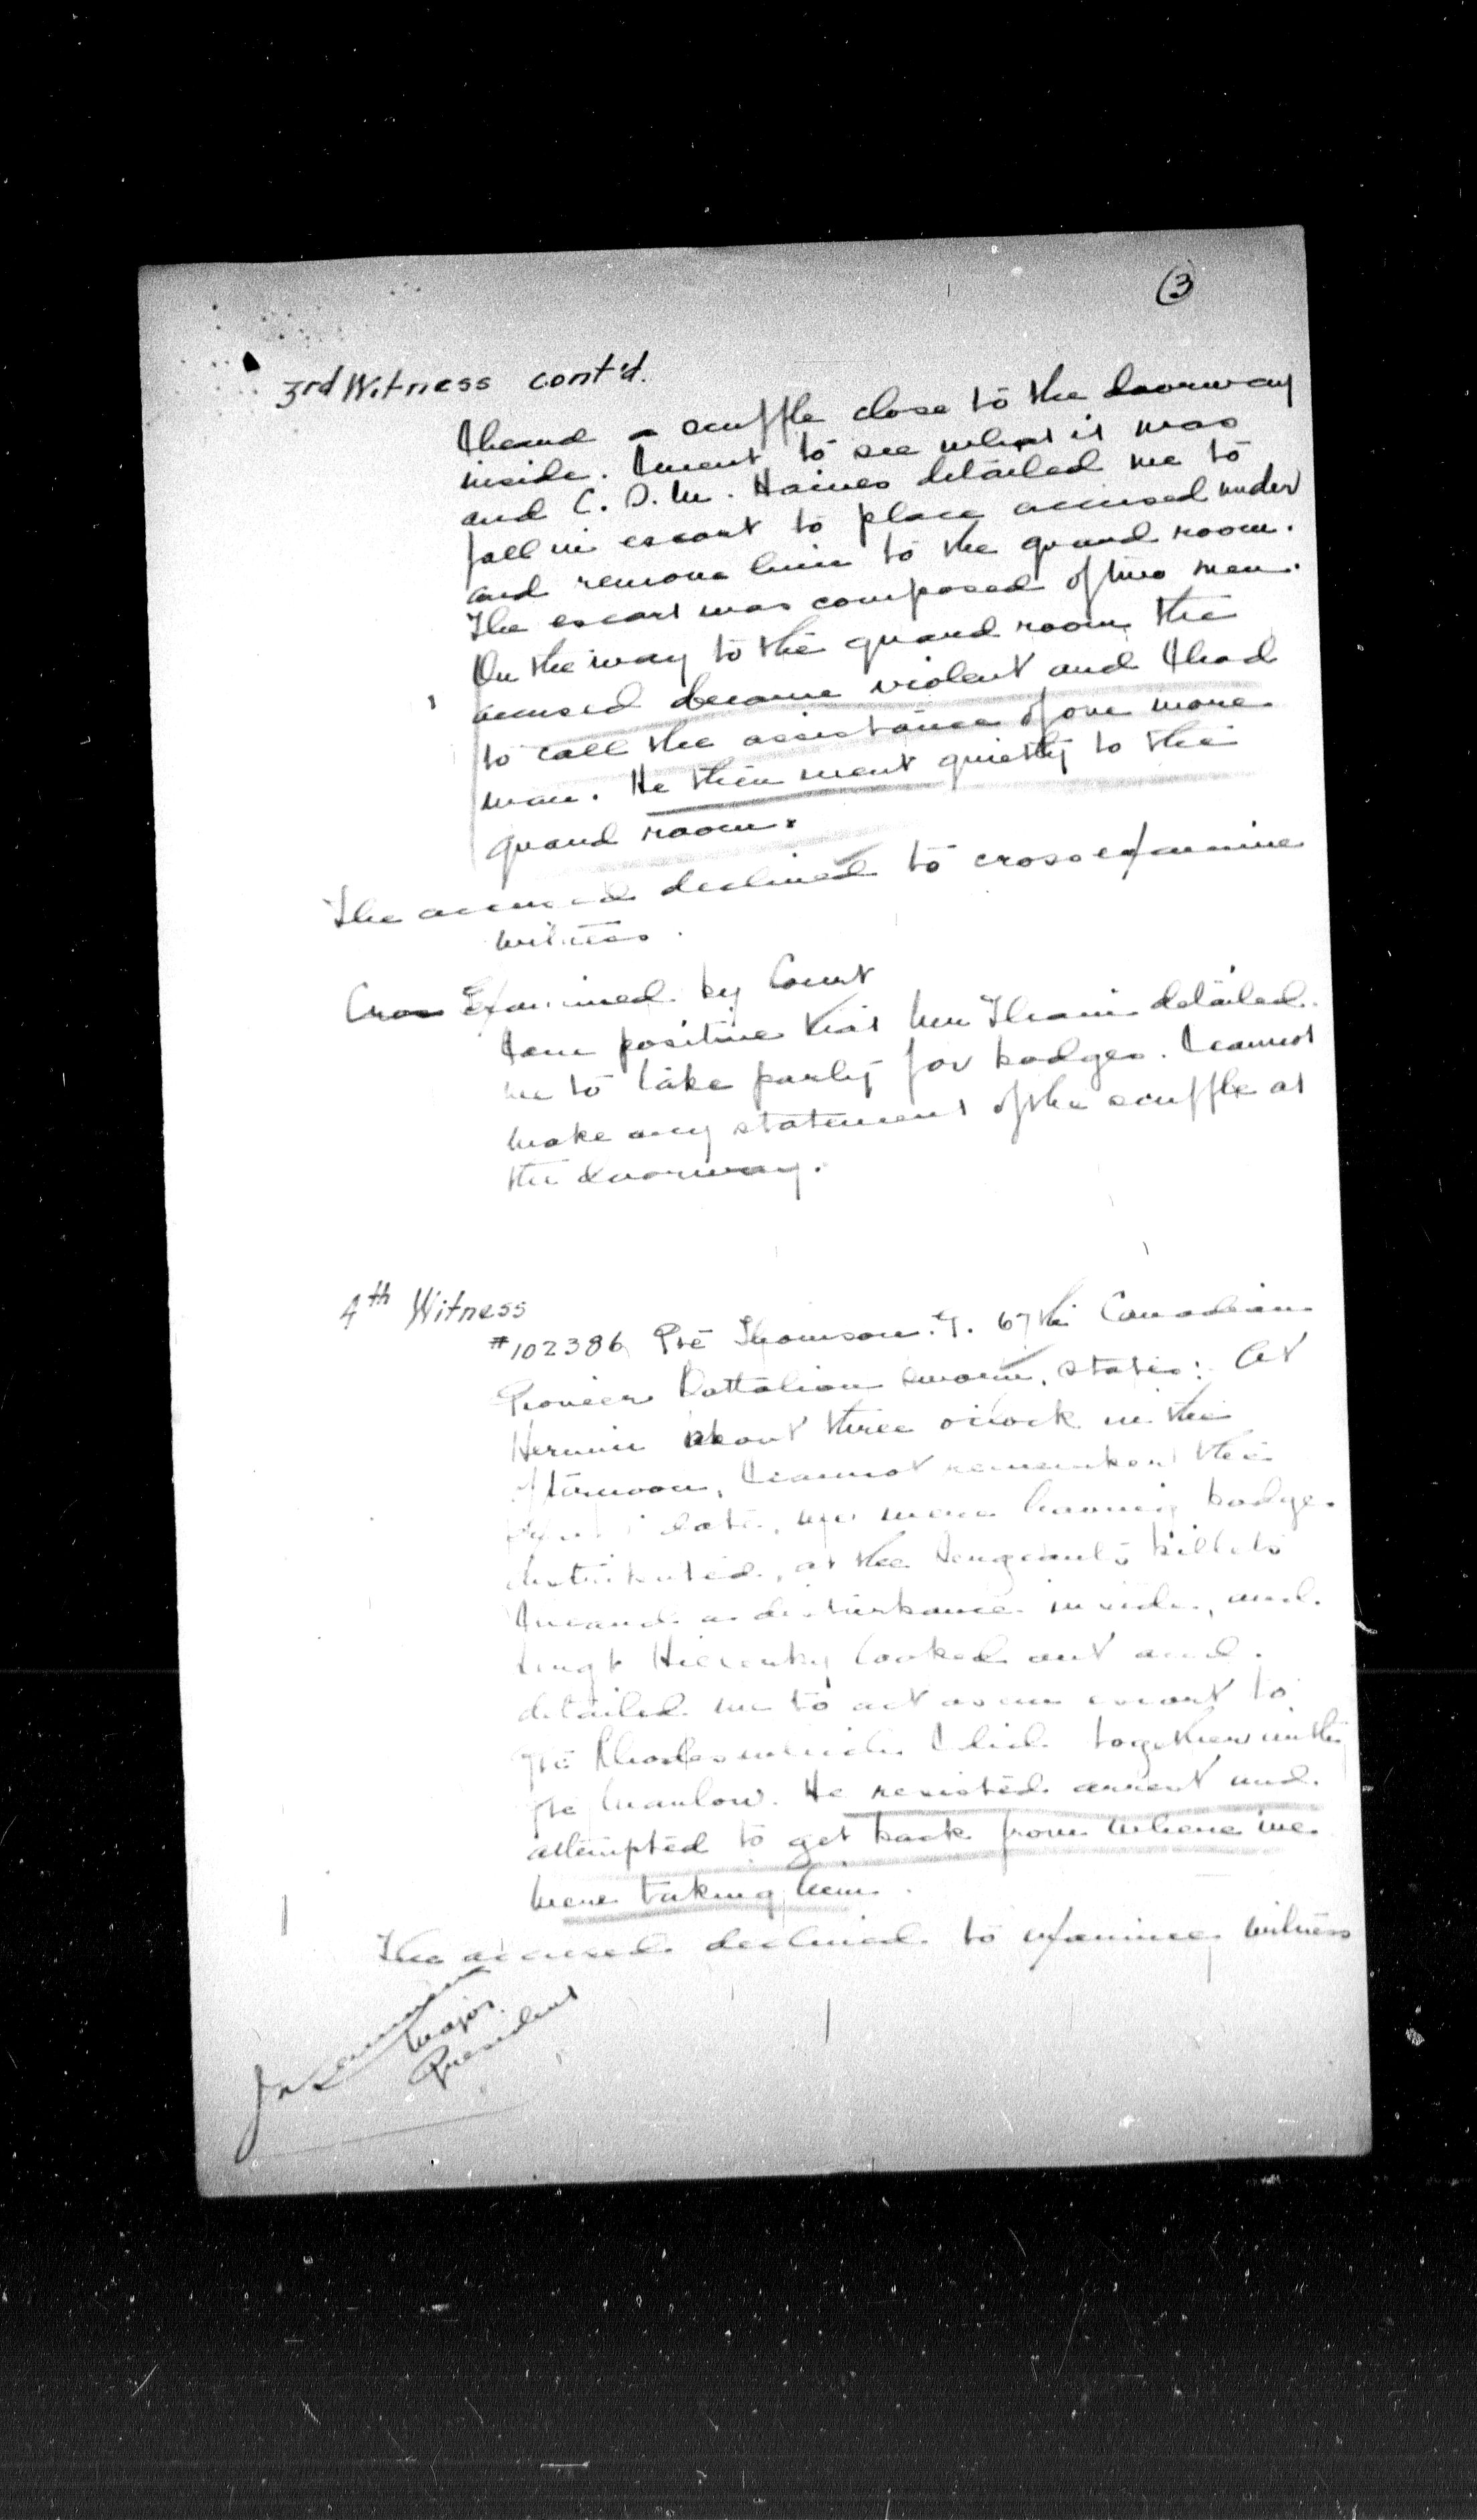 (3)
3rd Witness cont'd.
I heard a scuffle close to the doorway
inside. I went to see what it was
and C. S. M. Haines detailed me to
fall in escort to place accused under
and remove him to the guard room.
The escort was composed of two men.
On the way to the guard room the
accused became violent and I had
to call the assistance of one more
man. He then went quietly to the
guard room.
The accused declined to cross examine
witness.
Cross Examined by Court
I am positive that detailed
me to take party for badges. I cannot
make any statement of the scuffle at
the doorway.
4th Witness
#102386 Pte Thomson. 67th Canadian
Pioneer Battalion sworn, states: At
about three oclock in the
afternoon, I cannot remember the
date, we were having badges
distributed, at the Sergeants billets
I heard a disturbance inside, and
Sergt looked out and
detailed me to act as an escort to
Pte Rhodes which I did together with
Pte Manlow. He resisted arrest and
attempted to get back from where we
were taking him.
The accused declined to examine witness
Major
President